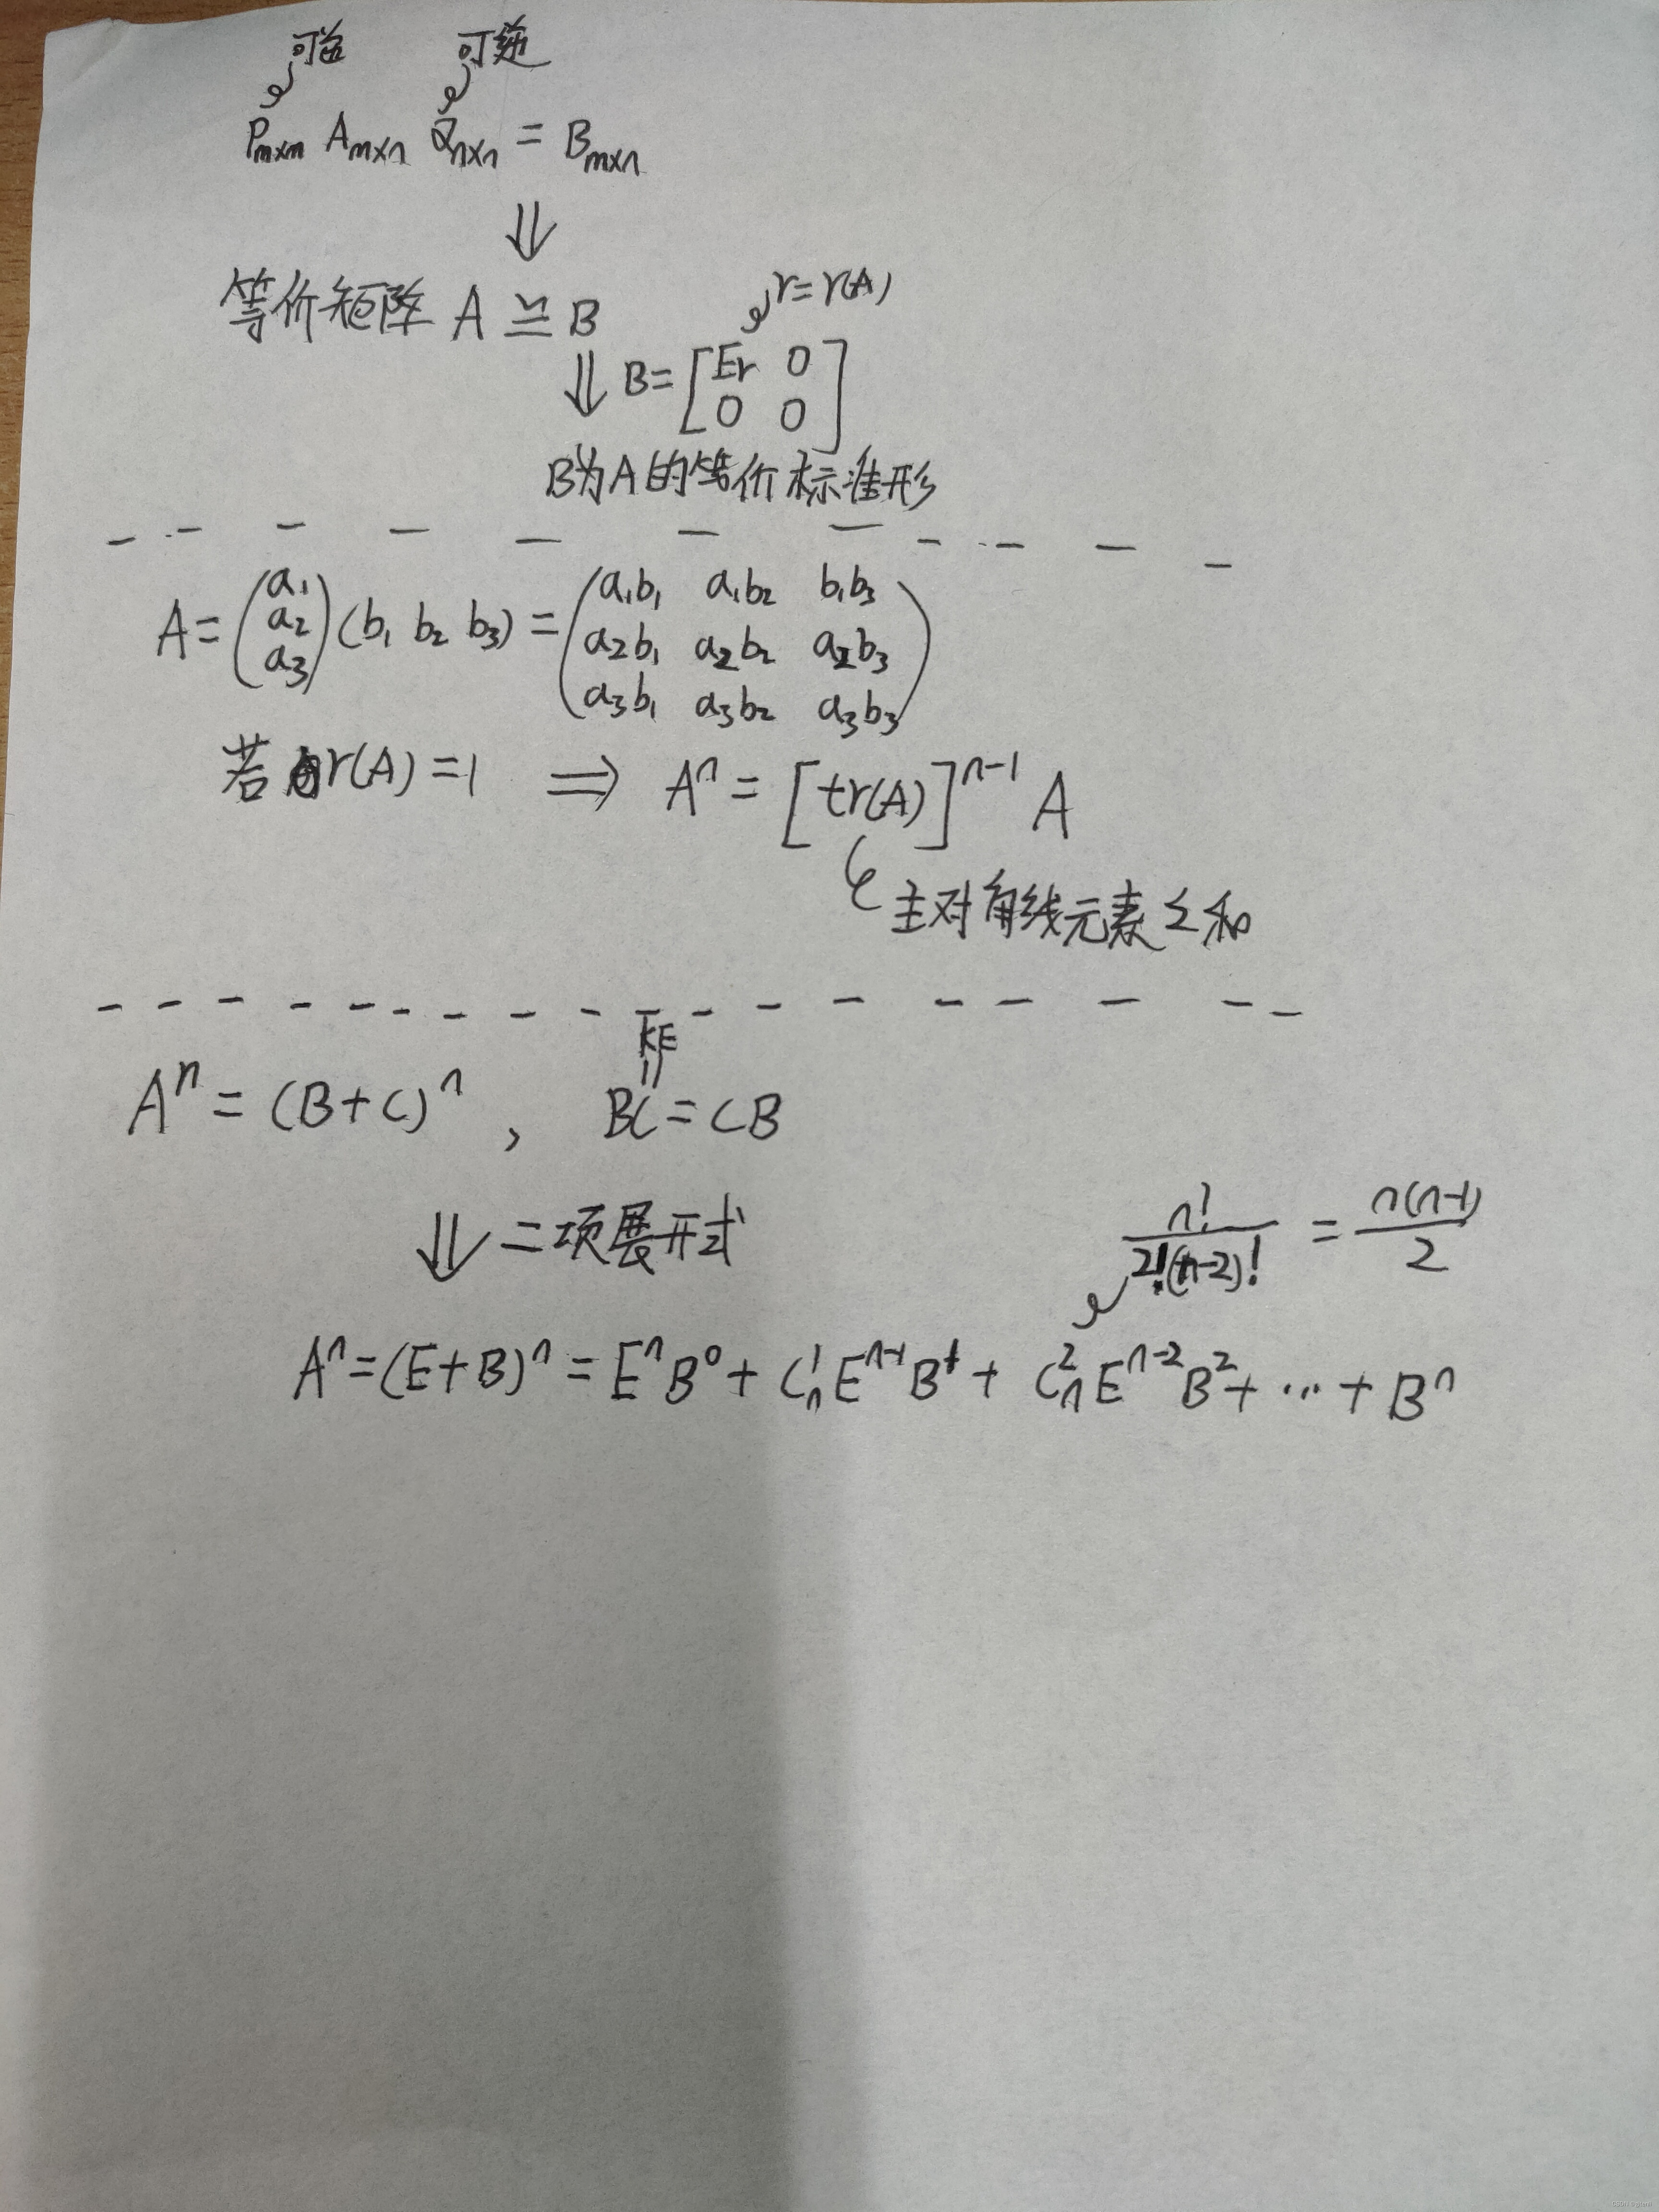 可逆 可逆
P_{m×m} A_{m×n} Q_{n×n} = B_{m×n}
⇓
等价矩阵 A ≅ B
r=r(A)
⇓ B=[Er 0
0 0]
B为A的等价标准形
A=(a₁ a₂ a₃)(b₁ b₂ b₃)=(a₁b₁ a₁b₂ b₁b₃
a₂b₁ a₂b₂ a₂b₃
a₃b₁ a₃b₂ a₃b₃)
若 r(A)=1 ⇒ Aⁿ = [tr(A)]ⁿ⁻¹ A
主对角线元素之和
kE
Aⁿ = (B+C)ⁿ , BC=CB
⇓ 二项展开式
n!/2!(n-2)! = n(n-1)/2
Aⁿ=(E+B)ⁿ = EⁿB⁰ + C¹ₙEⁿ⁻¹B¹ + C²ₙEⁿ⁻²B² + ... + Bⁿ